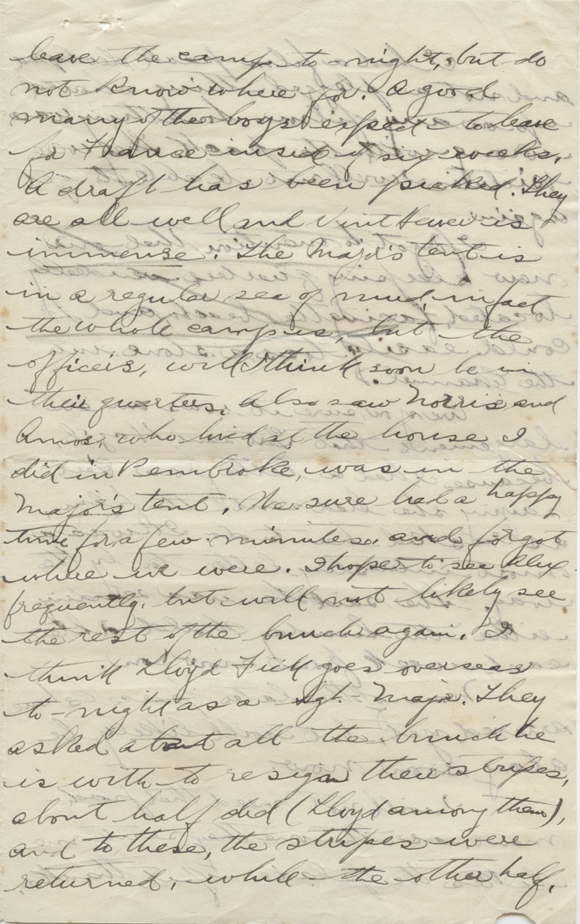 leave the camp to-night, but do
not know where for. A good
many of the boys expect to leave
for France inside of six weeks.
A draft has been picked. They
are all well and Vint Hewer is
immense. The Major's tent is
in a regular sea of mud, in fact
the whole camp is, but the
officers, will I think soon be in
their quarters. Also saw Norris and
Amos, who lived at the house I
did in Pembroke, was in the
Major's tent. We sure had a happy
time for a few minutes, and forgot
where we were. I hope to see Alex
frequently, but will not likely see
the rest of the bunch again. I
think Lloyd Fick goes overseas
to-night as a Sgt. Major. They
asked about all the bunch he
is with to resign their stripes,
about half did (Lloyd among them),
and to these, the stripes were
returned, while the other half,